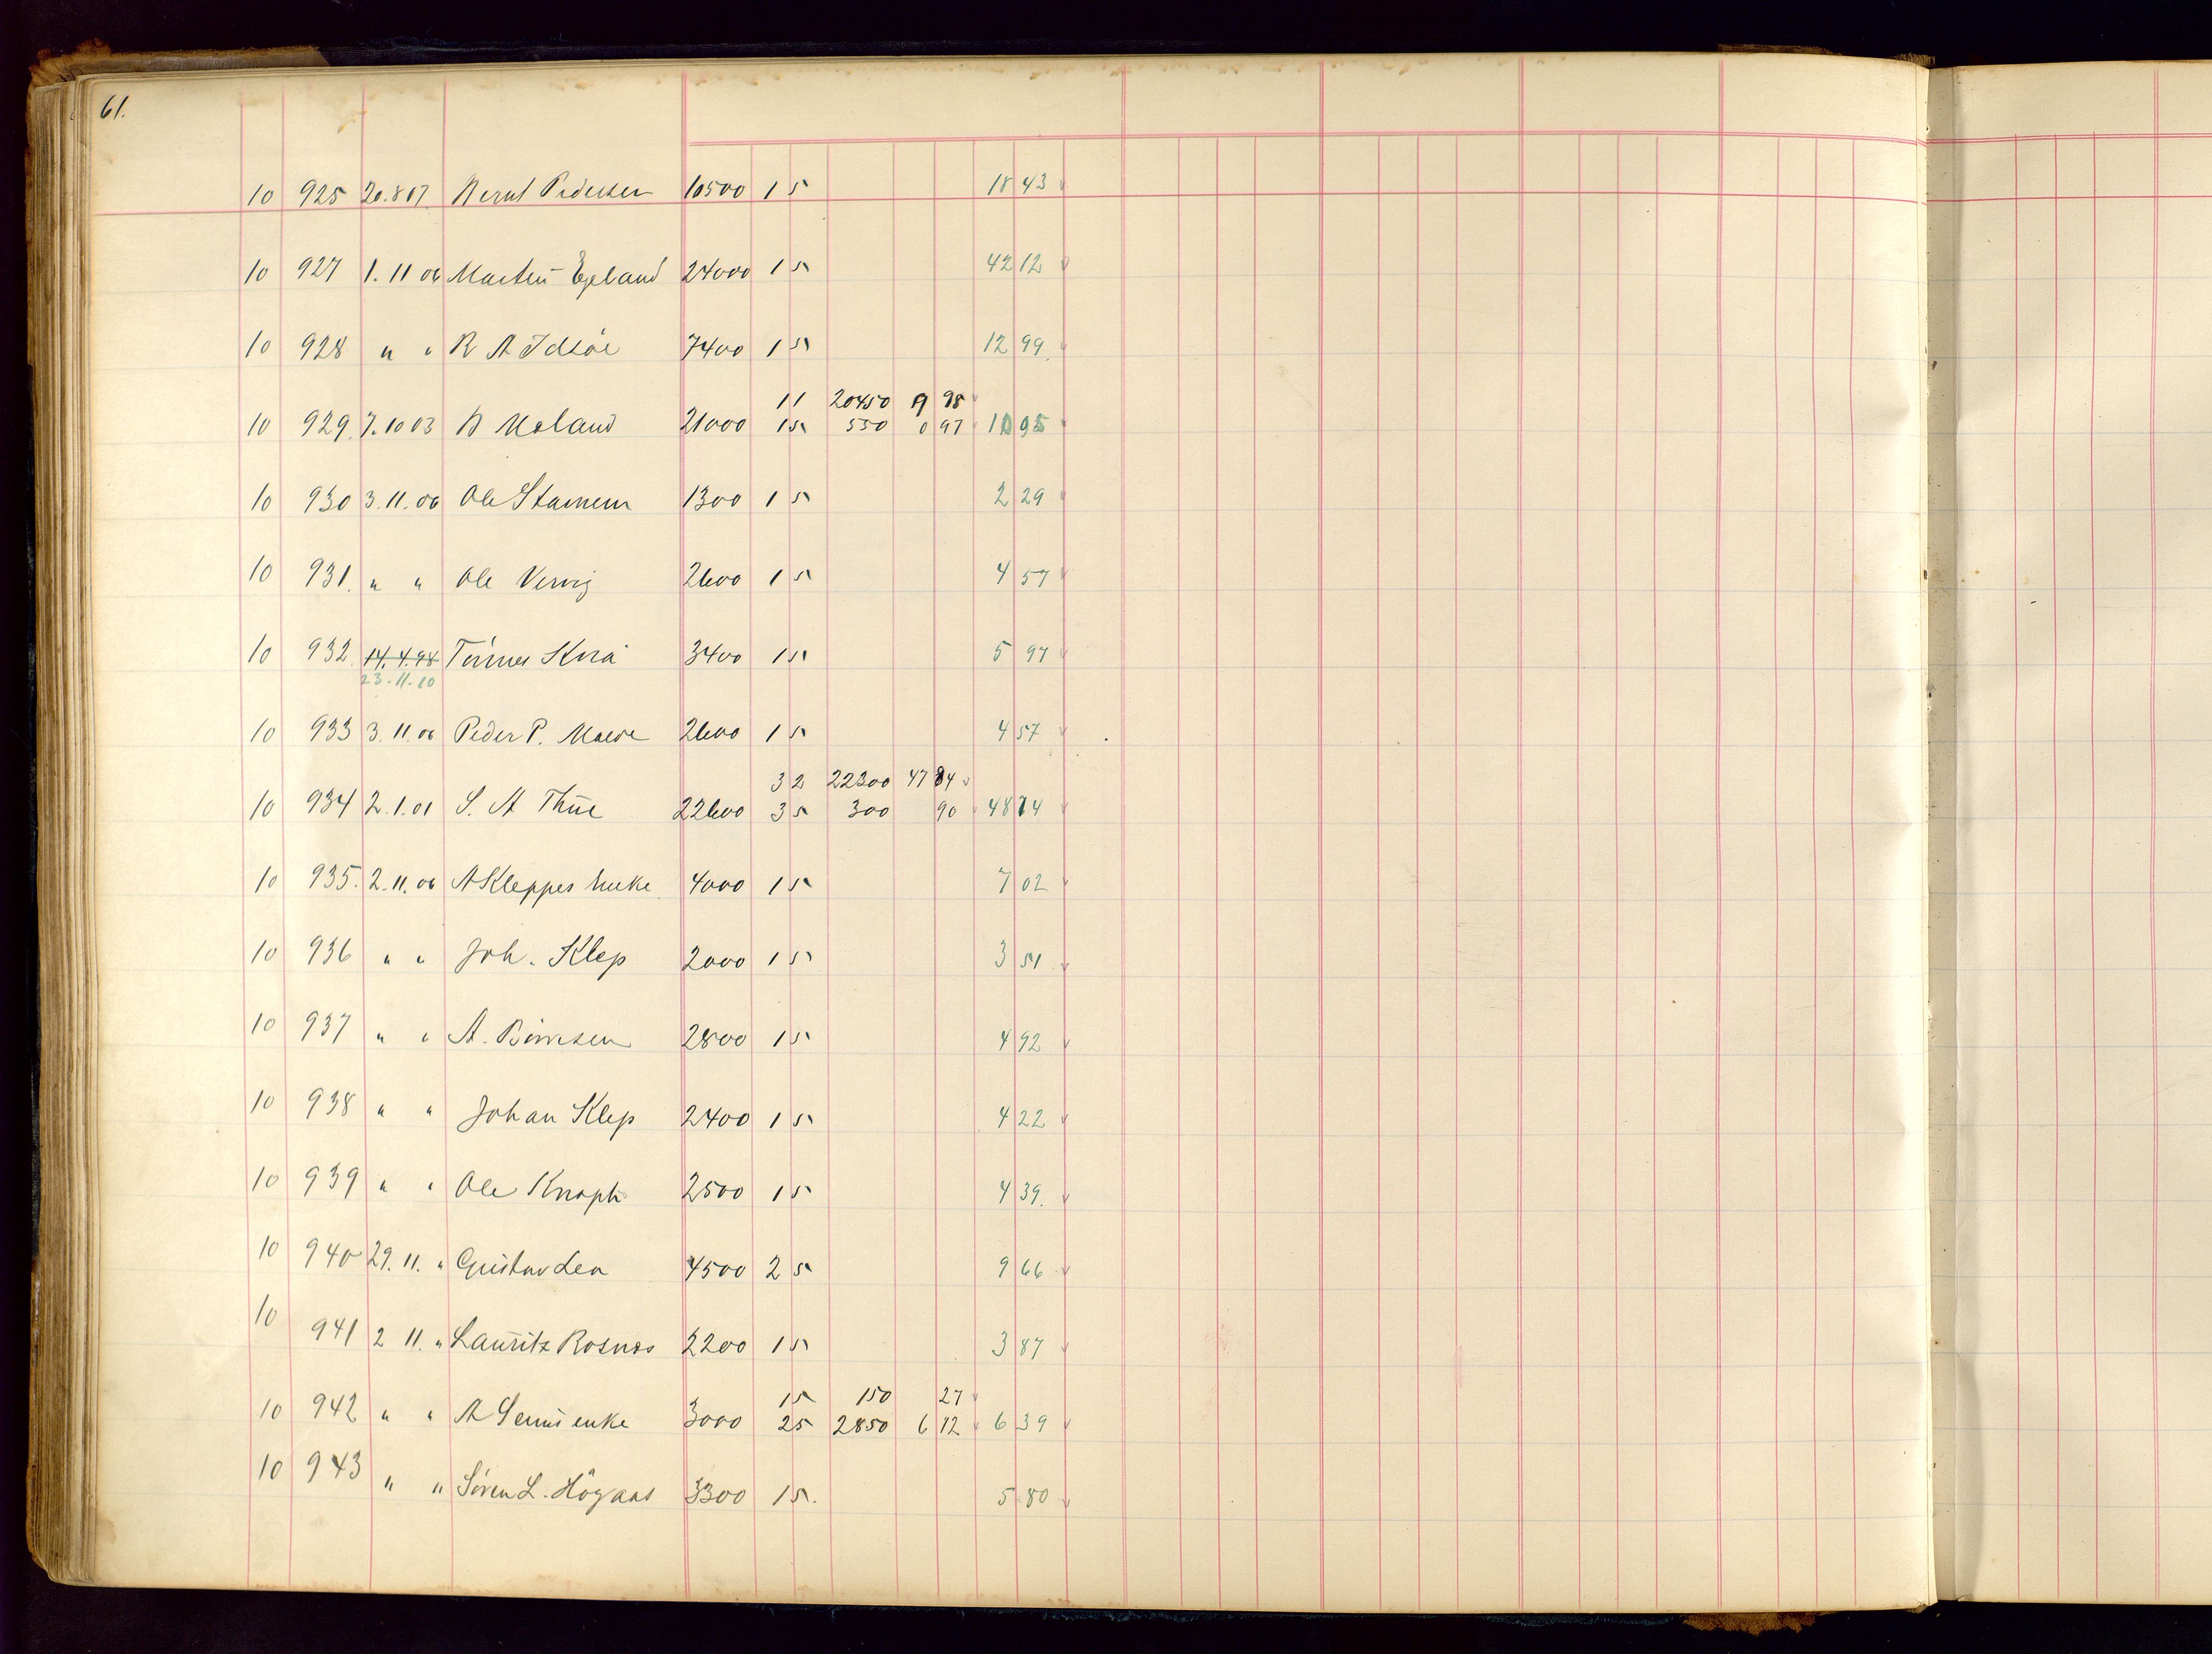 61.
10 925 20.8 07. Bernt Pedersen 10500 1 5 18 43
10 927 1. 11 06 Marten Egeland 24000 1 5 42 12
10 928 " " R A Idsöe 7400 1 5 12 99.
11 20450 9 98
10 929. 7. 10 03 B Moland 21000 15 550 0 97 10 95
10 930 3. 11. 06 Ole Stamnem 1300 1 5 2 29
10 931. " " Ole Vervig 2600 1 5 4 57
10 932 14. 4. 98 Tönnes Kvia 3400 15 5 97
23.-11.-10
10 933 3. 11. 06 Peder P. 2600 1 5 4 57
32 22300 47 84
10 934 2. 1. 01 S. A Thue 22600 35 300 90 48 74
10 935. 2. 11. 06 A Kleppes enke. 4000 1 5 7 02
10 936 " " Joh. Klep 2000 1 5 3 51
10 937 " " A. Börresen 2800 1 5 4 92
10 938 " " Johan Klep 2400 1 5 4 22
10 939 " " Ole Knoph 2500 1 5 4 39.
10 940 29. 11. " Gustav Lea 4500 2 5 9 66
10 941 2 11. " Lauritz Rosnes 2200 1 5 3 87
15 150 27
10 942 " " A enke 3000 25 2850 6 12 6 39
10 943 " " Sören L. Högaas 3300 15. 5 80